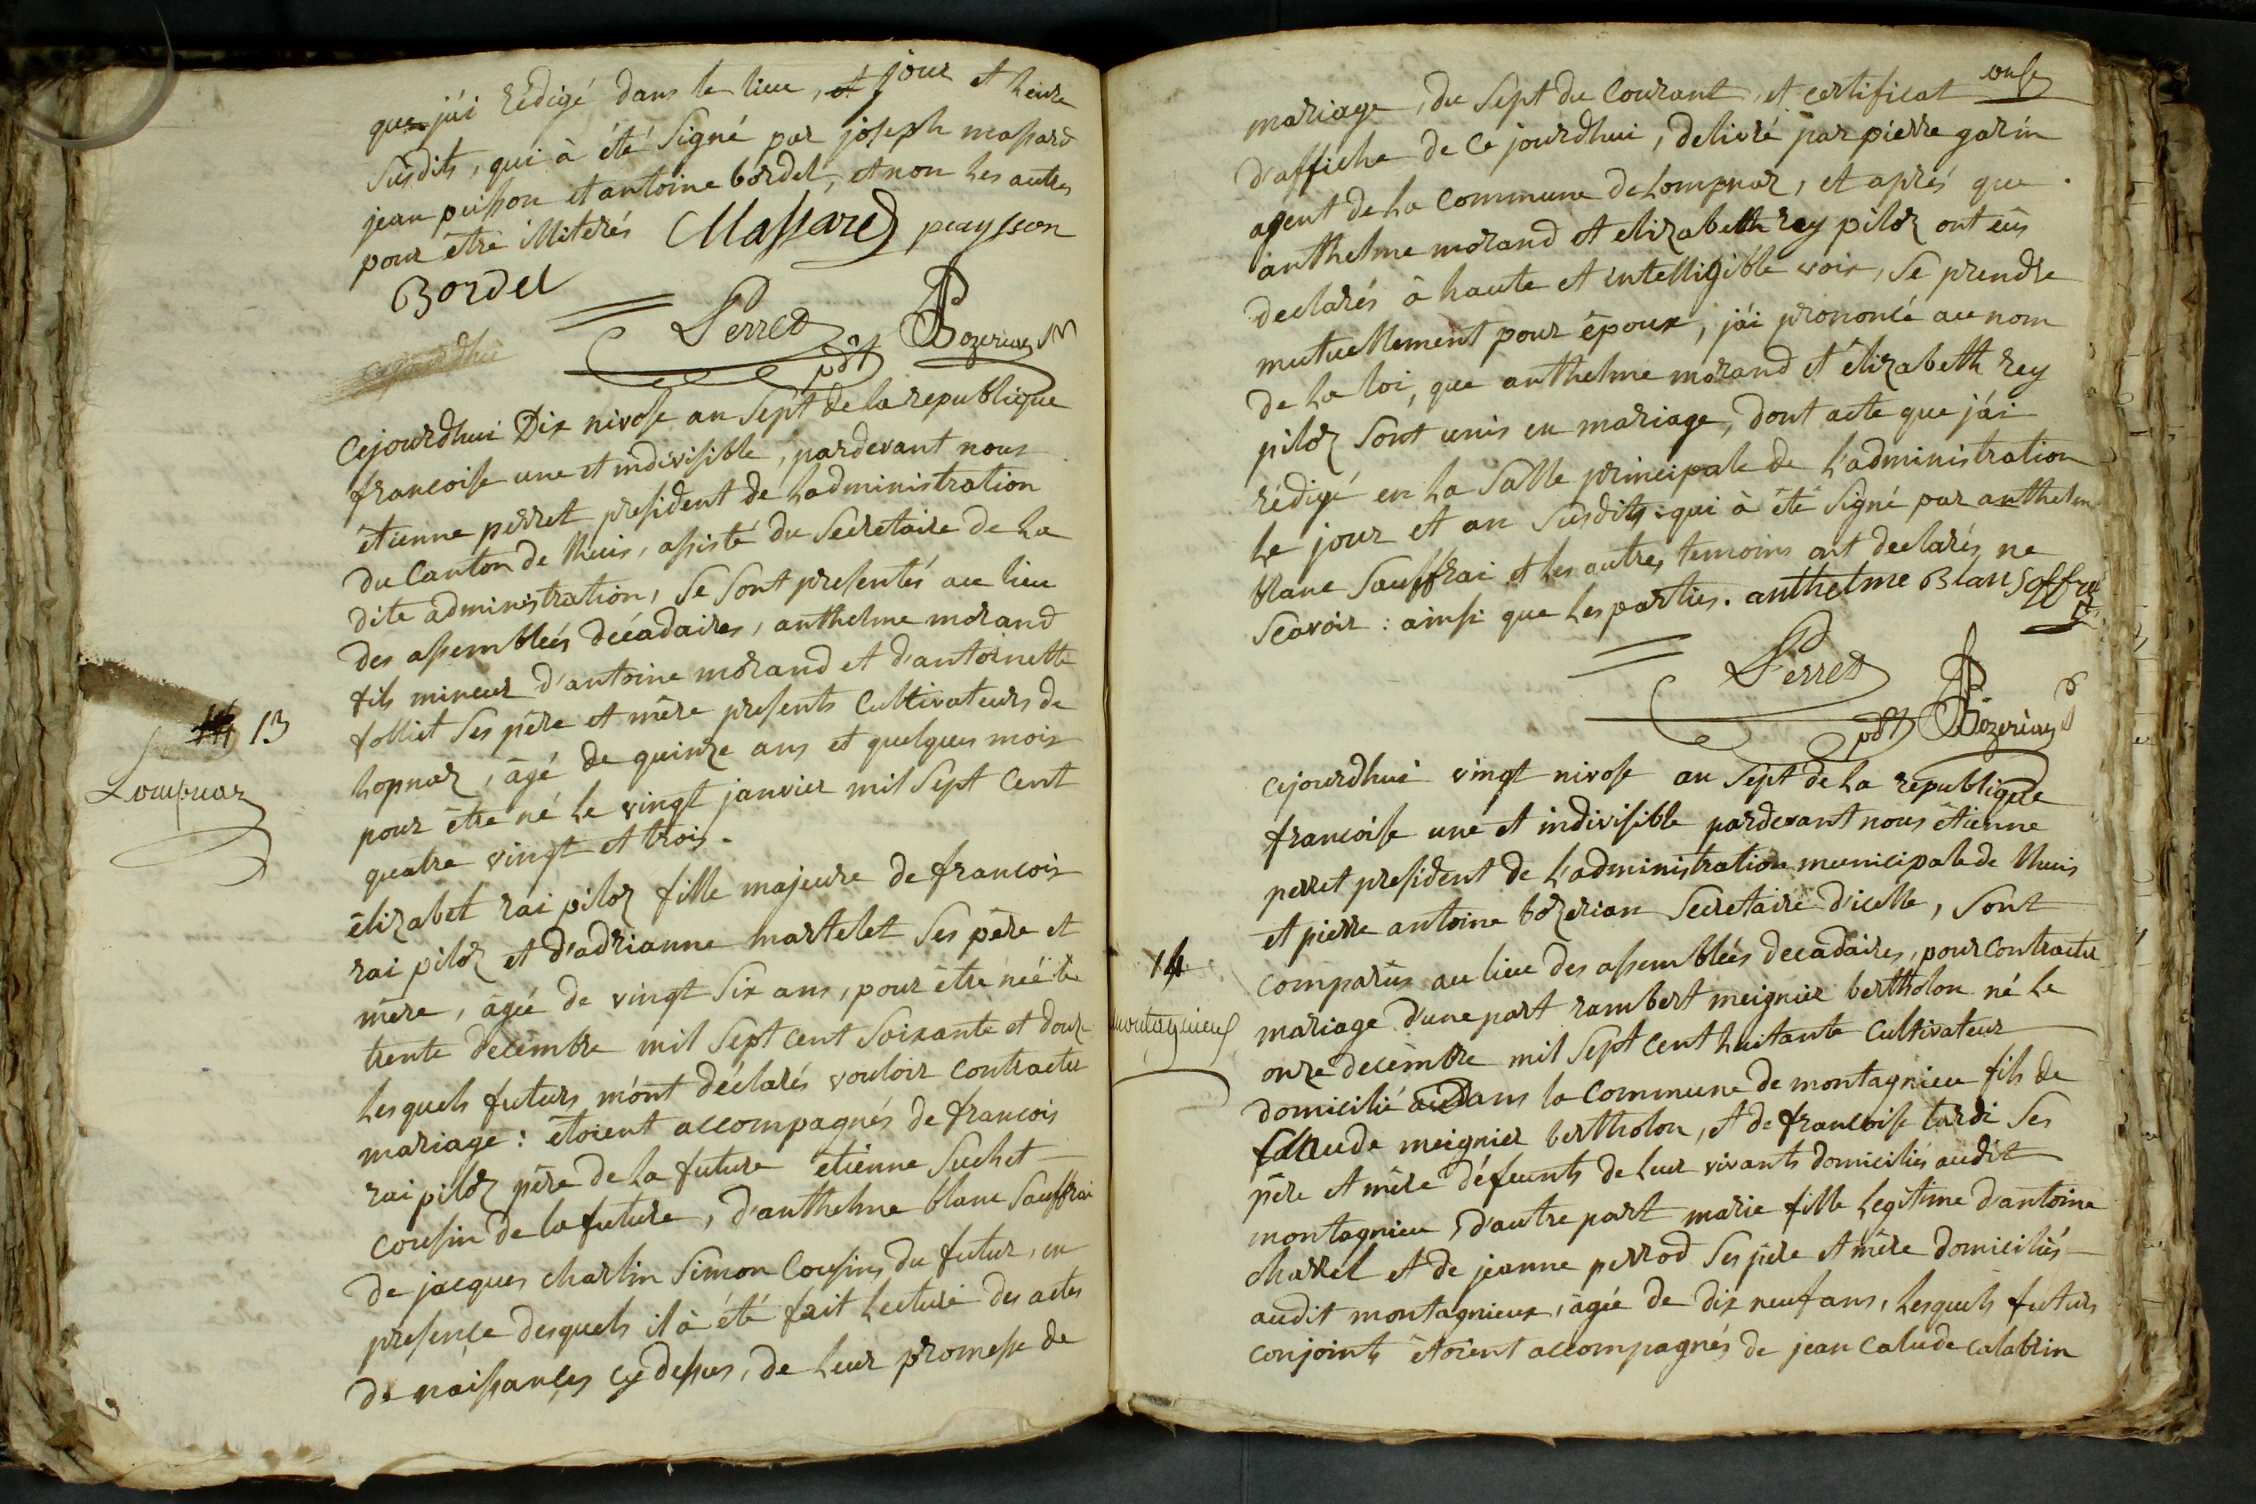 que j'ai rédigé dans le lieu, et jour et heure
susdits, qui à été signé par joseph massard
jean peisson et antoine bordel, et non les autres
pour être illiterés Massard peaysson
Bordel
Perret
pdt Bozerian
cejourdhui
Cejourdhui Dix nivose an sept de la republique
francoise une et indivisible, pardevant nous
étienne perret president de l'administration
du Canton de lhuis, assisté du Secretaire de la
dite administration, se sont presentés au lieu
des assembleés décadaires, anthelme morand
fils mineur d'antoine morand et d'antoinette
folliet ses père et mère presents Cultivateurs de
13
Lompnaz
lopnaz, âgé de quinze ans et quelques mois
pour être né le vingt janvier mil sept cent
quatre vingt et trois.
élizabet rai piloz fille majeure de francois
rai piloz et d'adrianne martelet ses père et
mère, âgée de vingt six ans, pour être néé le
trente decembre mil sept cent soixante et douze
lesquels futurs m'ont déclarés vouloir contracter
mariage : étoient accompagnés de francois
rai piloz père de la future etienne suchet
cousin de la future, d'anthelme blanc sauffrai
de jacques charlin simon cousins du futur, en
presence desquels il à été fait lecture des actes
de naissances cy dessus, de leur promesse de
onze
mariage, du sept du Courant, et certificat
d'affiche de ce jourdhui, delivré par pierre garin
agent de la commune de lompnaz, et aprés que
anthelme morand et elizabeth rey piloz ont eüs
declarés à haute et intelligible voix, se prendre
mutuellement pour époux, j'ai prononcé au nom
de la loi, que anthelme morand et élizabeth rey
piloz sont unis en mariage, dont acte que j'ai
rédigé en la salle principale de l'administration
le jour et an susdits : qui à été signé par anthelm
blanc sauffrai et les autres temoins ont declarés ne
scavoir : ainsi que les parties. anthelme Blan soffre
Perret
pdt Bozerian
cejourdhui vingt nivose an sept de la république
francoise une et indivisible pardevant nous étienne
perret president de l'administration municipale de lhuis
et pierre antoine bozerian Secretaire d'icelle, sont
14
montagnieu
comparüs au lieu des assembleés decadaires, pour contracter
mariage d'une part rambert meignier bertholon né le
onze decembre mil sept cent huitante cultivateur
domicilié dans la commune de montagnieu fils de
Claude meignier bertholon, et de francoise tardi ses
père et mère défunts de leur vivants domiciliés audit
montagnieu, d'autre part marie fille legitime d'antoine
charrel et de jeanne perrod ses père et mère domiciliés
audit montagnieux, âgée de dix neuf ans, lesquels futurs
conjoints étoient accompagnés de jean calude calablin